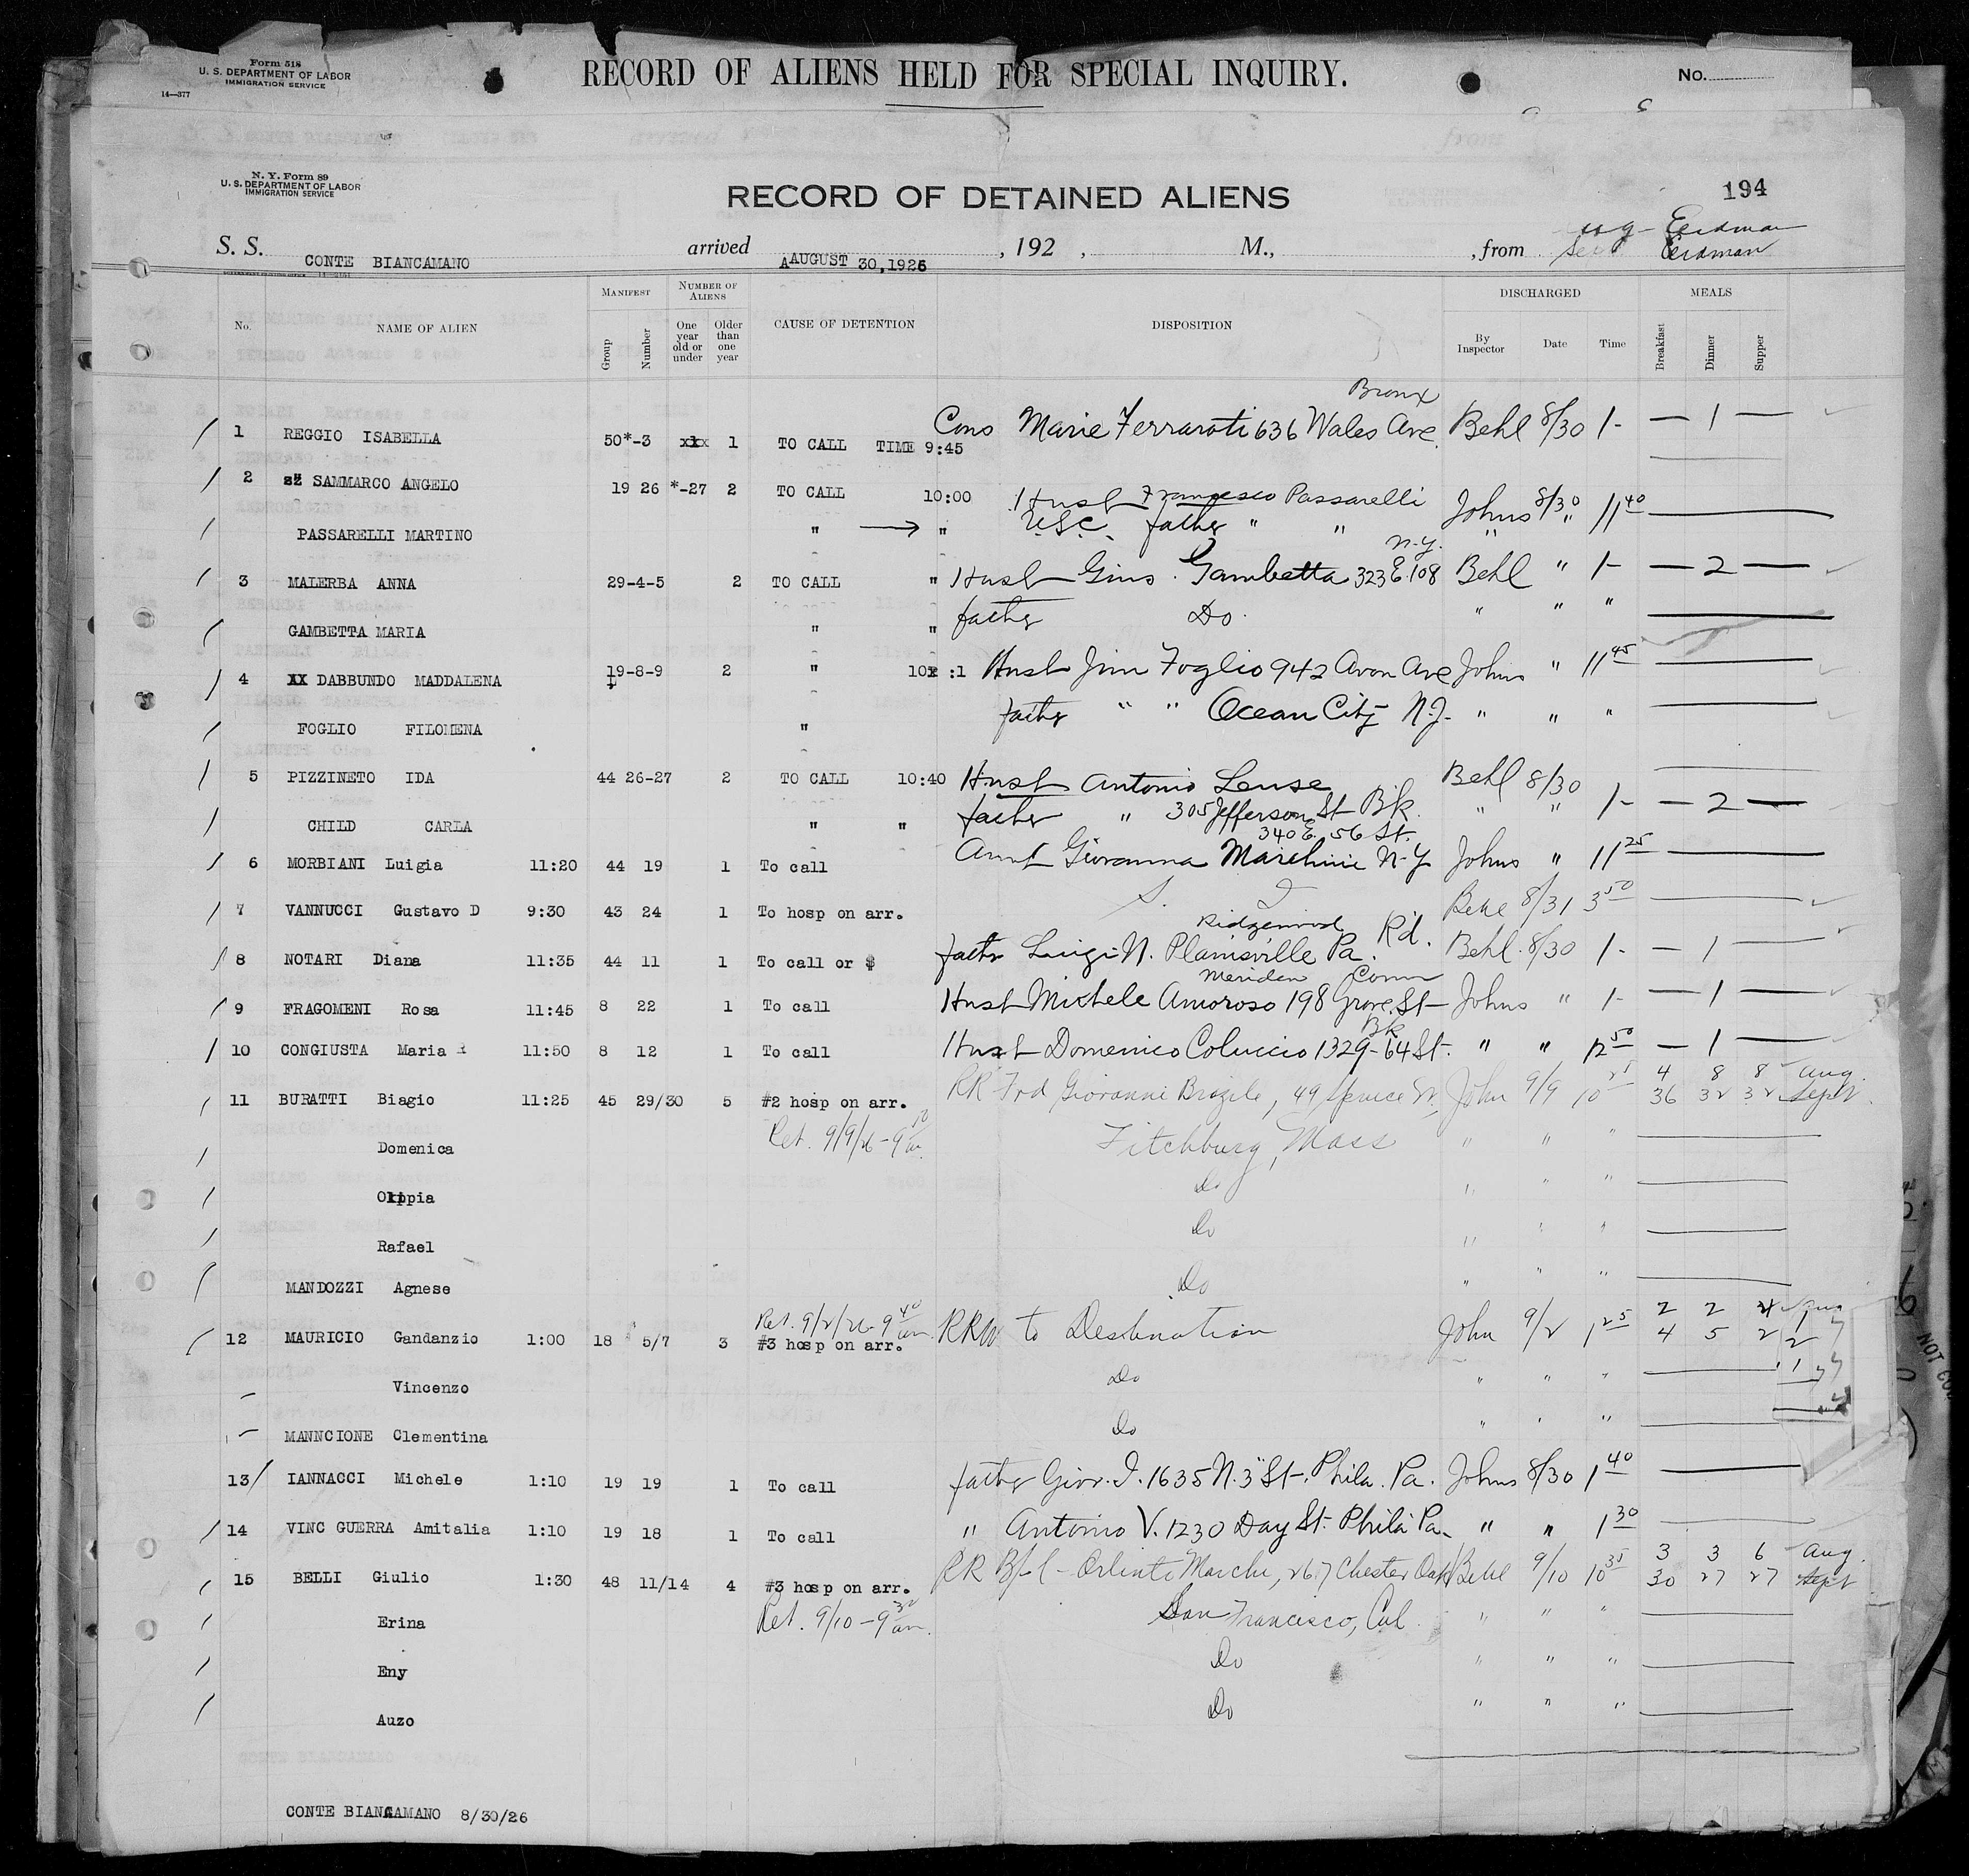 Form 518
U. S. DEPARTMENT OF LABOR
IMMIGRATION SERVICE
14—377
RECORD OF ALIENS HELD FOR SPECIAL INQUIRY.
No.
N. Y. Form 89
U. S. DEPARTMENT OF LABOR
IMMIGRATION SERVICE
RECORD OF DETAINED ALIENS
194
Erdman
S. S. CONTE BIANCAMANO arrived AAUGUST 30,1926 , 192 , M., , from Erdman
No. NAME OF ALIEN MANIFEST Group Number NUMBER OF ALIENS One year old or under Older than one year CAUSE OF DETENTION DISPOSITION DISCHARGED By Inspector Date Time MEALS Breakfast Dinner Supper
Bronx
1 REGGIO ISABELLA 50*-3 xxx 1 TO CALL TIME 9:45 Cons Marie Ferraroti 636 Wales Ave. Behl 8/30 1- — 1 —
2 SAMMARCO ANGELO 19 26 *-27 2 TO CALL 10:00 Husb Francesco Passarelli Johns 8/30 11 40
PASSARELLI MARTINO " " U.S.C. father " " " "
N.Y.
3 MALERBA ANNA 29-4-5 2 TO CALL " Husb Gino Gambetta 323 E. 108 Behl " 1- — 2 —
GAMBETTA MARIA " " father Do. " " "
4 XX DABBUNDO MADDALENA 19-8-9 2 " 10x :1 Husb Jim Foglio 942 Avon Ave Johns " 11 45
FOGLIO FILOMENA " father " " Ocean City N.J. " " "
5 PIZZINETO IDA 44 26-27 2 TO CALL 10:40 Husb Antonio Lense Behl 8/30
CHILD CARLA " " father " 305 Jefferson St Bk. " " 1- — 2 —
340 E. 56 St.
6 MORBIANI Luigia 11:20 44 19 1 To call Aunt Giovanna Marchini N-Y Johns " 11 25
7 VANNUCCI Gustavo D 9:30 43 24 1 To hosp on arr. S. I Behl 8/31 3 50
Ridgewood Rd.
8 NOTARI Diana 11:35 44 11 1 To call or $ father Luigi N. Plainsville Pa. Behl. 8/30 1- — 1 —
Meriden Conn
9 FRAGOMENI Rosa 11:45 8 22 1 To call Husb Michele Amoroso 198 Grove St Johns " 1- — 1 —
Bk
10 CONGIUSTA Maria 11:50 8 12 1 To call Husb Domenico Coluccio 1329-64 St. " " 12 50 — 1 —
4 8 8 Aug.
11 BURATTI Biagio 11:25 45 29/30 5 #2 hosp on arr. RR Frd Giovanni Brizile, 49 Spruce St. John 9/9 10 25 36 32 32 Sept.
Domenica Ret. 9/9/26 - 9 10 am. Fitchburg, Mass " " "
Olippia Do " " "
Rafael Do " " "
MANDOZZI Agnese Do " " "
Ret. 9/2/26 - 9 40 am. 2 2 4 Aug
12 MAURICIO Gandanzio 1:00 18 5/7 3 #3 hosp on arr. RRW to Destination John 9/2 1 25 4 5 2 2
Vincenzo Do " " "
MANNCIONE Clementina Do " " "
13 IANNACCI Michele 1:10 19 19 1 To call father Giov. I. 1635 N. 3" St. Phila. Pa. Johns 8/30 1 40
14 VINC GUERRA Amitalia 1:10 19 18 1 To call " Antonio V. 1230 Day St. Phila Pa. " " 1 30
3 3 6 Aug.
15 BELLI Giulio 1:30 48 11/14 4 #3 hosp on arr. RR B-f-l - Orlinto Marchi, 267 Chester Behl 9/10 10 35 30 27 27 Sept
Erina Ret. 9/10 - 9 30 am. San Francisco, Cal. " " "
Eny Do " " "
Auzo Do " " "
CONTE BIANCAMANO 8/30/26